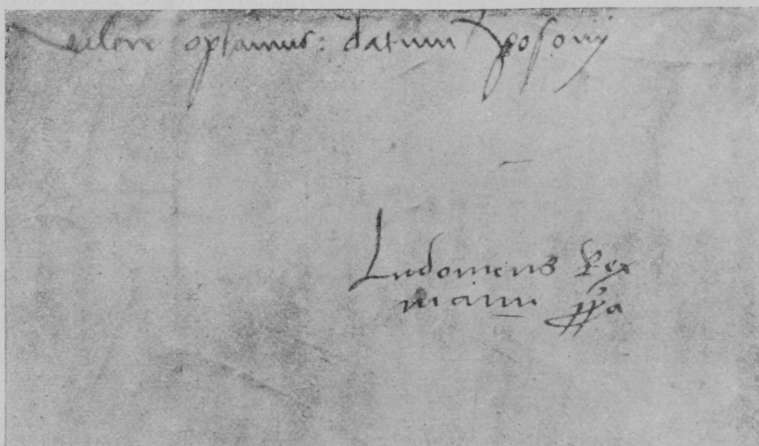 valere optamus: datum posonij
Ludovicus Rex
manu ppa